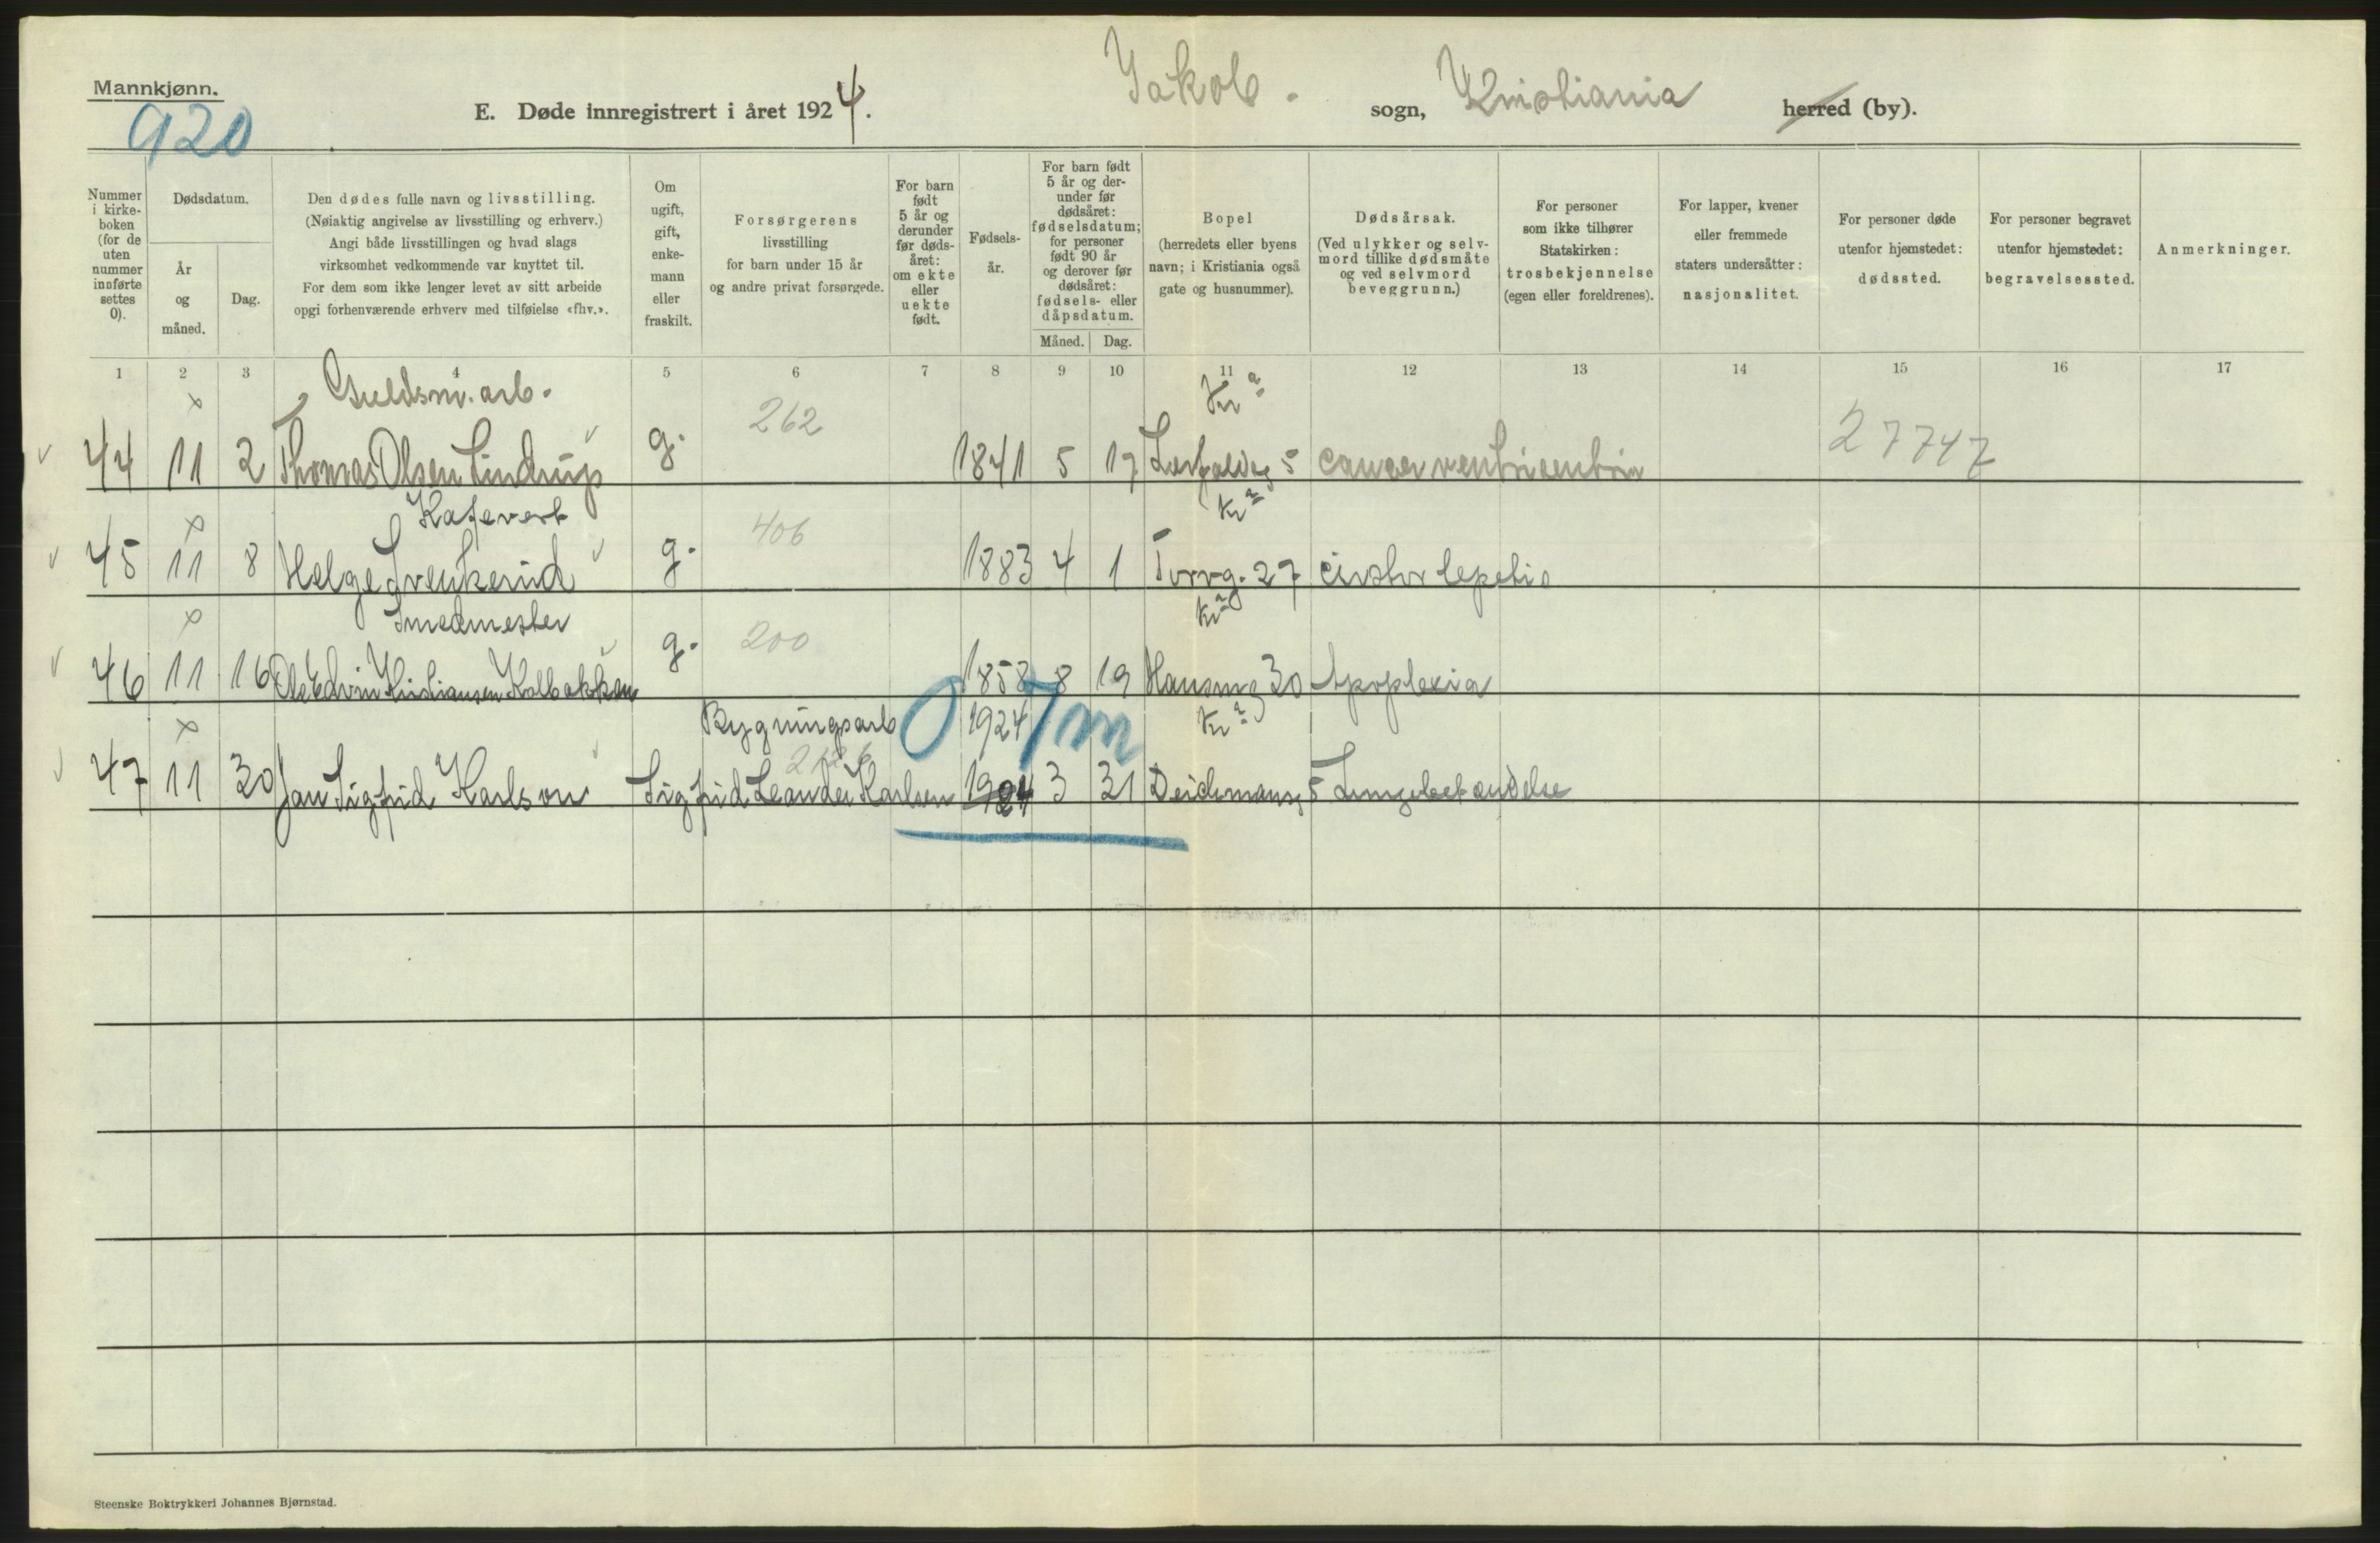 Mannkjønn.
920
E. Døde innregistrert i året 1924.
Jakob. sogn, Kristiania herred (by).
Nummer i kirke-boken (for de uten nummer innførte settes 0).
Dødsdatum.
År og måned.
Dag.
Den dødes fulle navn og livsstilling.
(Nøiaktig angivelse av livsstilling og erhverv.)
Angi både livsstillingen og hvad slags
virksomhet vedkommende var knyttet til.
For dem som ikke lenger levet av sitt arbeide
opgi forhenværende erhverv med tilføielse «fhv.».
Om ugift, gift, enke-mann eller fraskilt.
Forsørgerens
livsstilling
for barn under 15 år
og andre privat forsørgede.
For barn født 5 år og derunder før døds-året: om ekte eller uekte født.
Fødsels-år.
For barn født 5 år og der-under før dødsåret: fødselsdatum; for personer født 90 år og derover før dødsåret: fødsels- eller dåpsdatum.
Måned. Dag.
Bopel
(herredets eller byens
navn; i Kristiania også
gate og husnummer).
Dødsårsak.
(Ved ulykker og selv-
mord tillike dødsmåte
og ved selvmord
beveggrunn.)
For personer
som ikke tilhører
Statskirken:
trosbekjennelse
(egen eller foreldrenes).
For lapper, kvener
eller fremmede
staters undersåtter:
nasjonalitet.
For personer døde
utenfor hjemstedet:
dødssted.
For personer begravet
utenfor hjemstedet:
begravelsessted.
Anmerkninger.
1 2 3 4 5 6 7 8 9 10 11 12 13 14 15 16 17
x Guldsm. arb. 262 Kra 27747
44 11 2 Thomas Olsen Lindrup g. 1841 5 17 5 cancer
x Kafevert 406 Kra
45 11 8 Helge g. 1883 4 1 Torvg. 27
x Smedmester 200 Kra
46 11 16 Ole Edvin Kristiansen Kolbakken g. 1858 8 19 Hausmsg 30 Apoplexia
x Bygningsarb 0 7m 1924 Kra
47 11 30 Jan Sigfrid Karlson Sigfrid Leander Karlsen 1924 3 31 Deichmansg 5 Lungebetændelse
Steenske Boktrykkeri Johannes Bjørnstad.